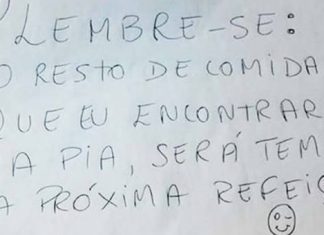 LEMBRE-SE:
O RESTO DE COMIDA
QUE EU ENCONTRAR
A PIA, SERÁ TEM
A PRÓXIMA REFEIÇ